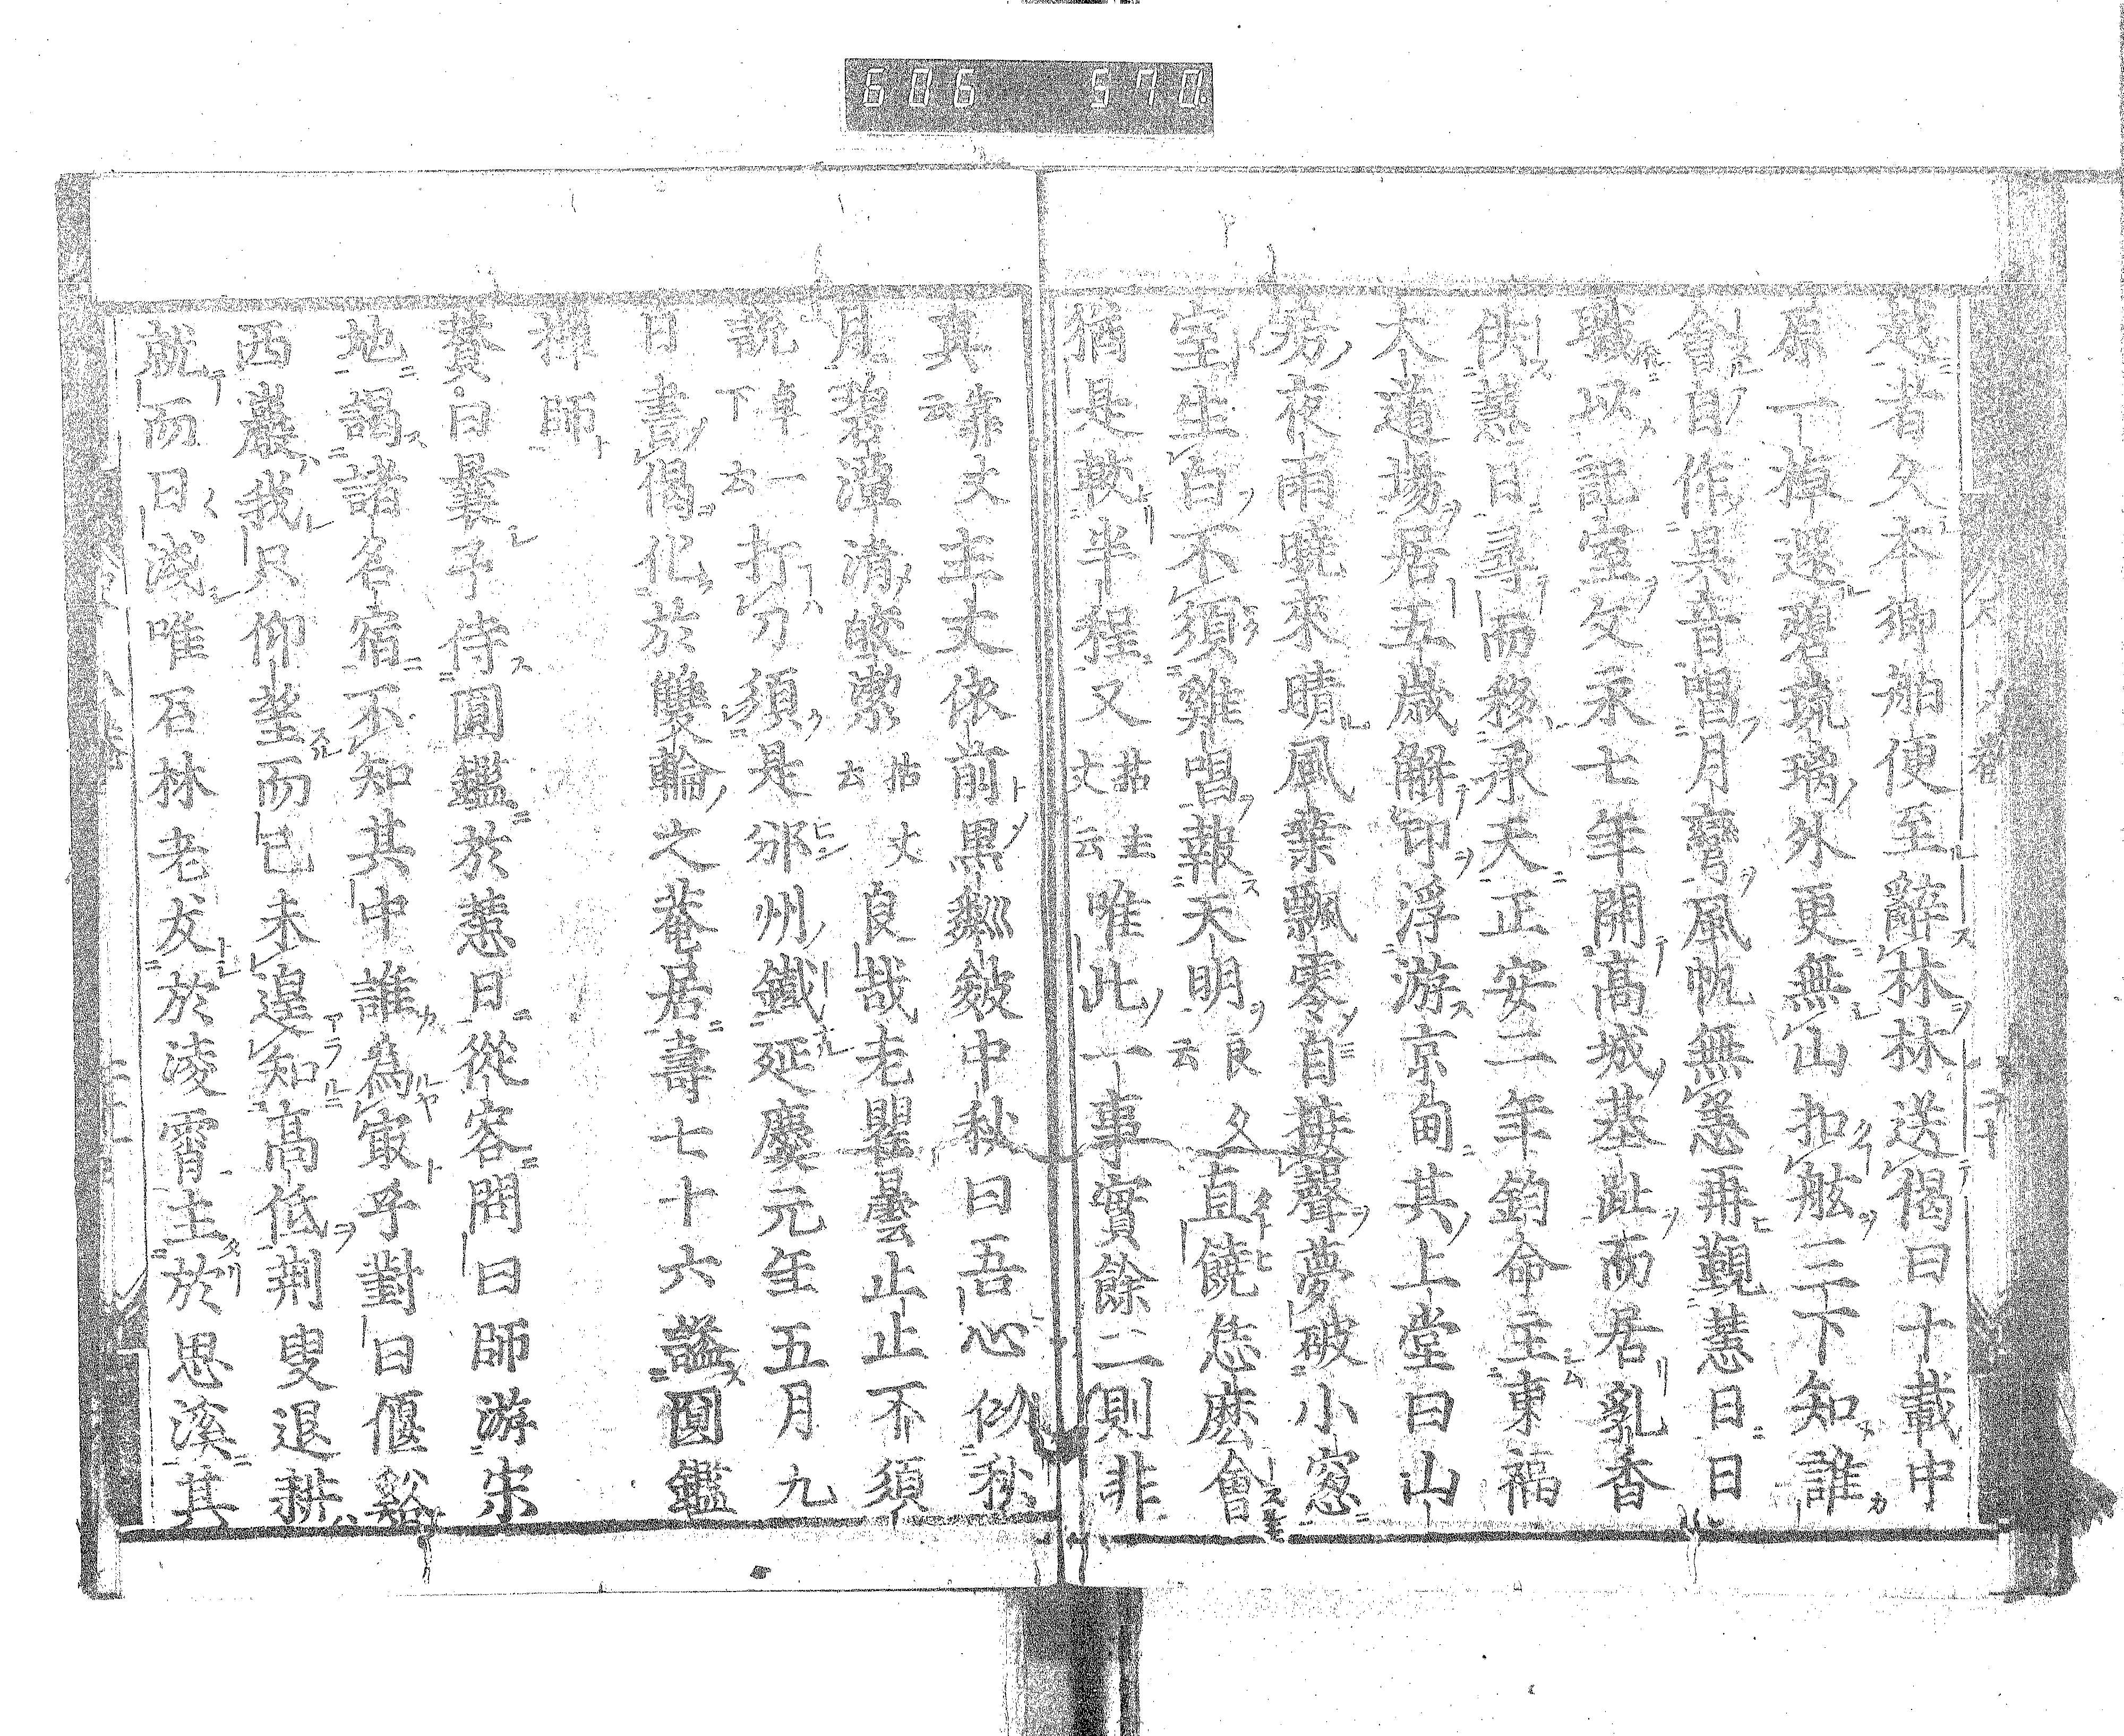 606 570
越者久本鄉舶便至辭林林送偈曰十載中
原一棹還碧琉璃外更無山扣舷三下知誰
會自作吳音唱月彎風帆無恙再覲慧日日
職以記室文永七年開高城基趾而居亂香
供慧日尋而移承天正安二年鈞命主東福
大道場居五歲解印浮游京甸其上堂曰山
房夜雨曉來晴風葉飄零自接聲夢破小窓
室生白不須雞唱報天明良久云直饒恁麼會
猶是較半程又拈主丈云唯此一事實餘二則非
真靠丈云主丈依前黑粼皴中秋曰吾心似秋
月碧潭清皎潔拈丈云良哉老瞿曇止止不須
說卓一下云打刀須是邠州鐵延慶元年五月九
日書偈化於雙輪之菴居壽七十六謚圓鑑
禪師
贊曰曩予侍圓鑑於慧日從容問曰師游宋
地謁諸名宿不知其中誰為冣乎對曰偃谿
西巖我只仰望而已未遑知高低荊叟退耕
就而日淺唯石林老友於淩霄主於思溪其